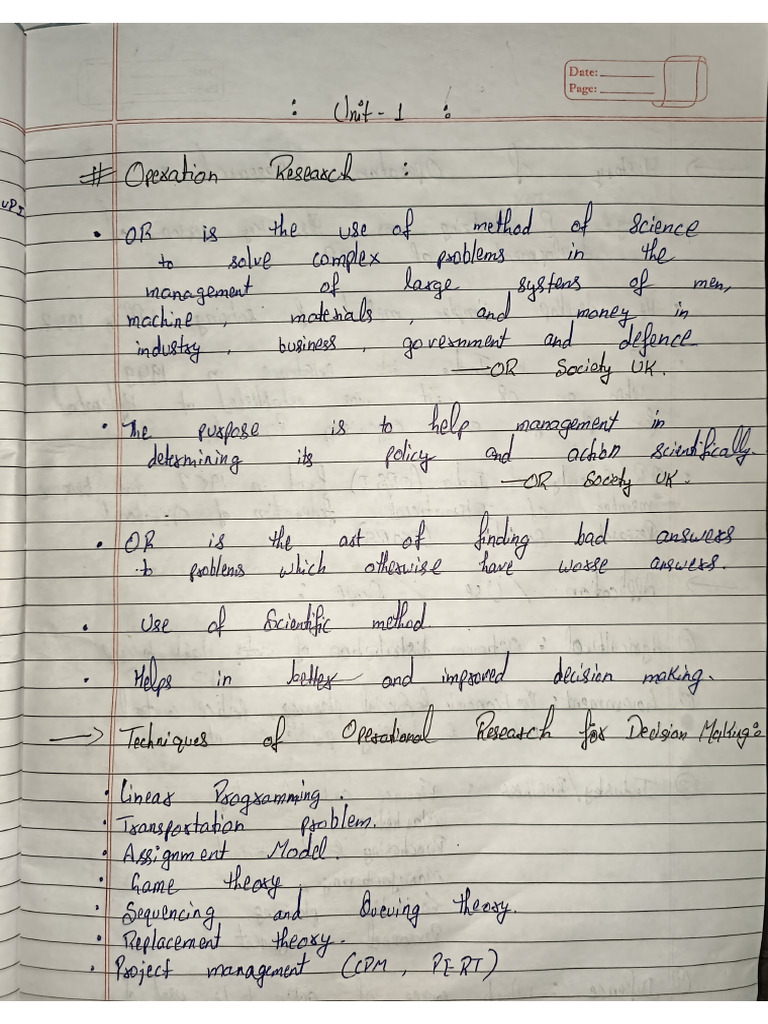 Date:
Page:
: Unit - 1 :
# Operation Research :
UPI
• OR is the use of method of Science
to solve complex problems in the
management of large systems of men,
machine, materials, and money in
industry, business, government and defence
—OR Society UK.
• The purpose is to help management in
determining its policy and action scientifically.
—OR Society UK.
• OR is the art of finding bad answers
to problems which otherwise have worse answers.
• Use of Scientific method
• Helps in better and improved decision making.
—> Techniques of Operational Research for Decision Making:
• Linear Programming.
• Transportation problem.
• Assignment Model.
• Game theory.
• Sequencing and Queuing theory.
• Replacement theory.
• Project management (CPM, PERT)